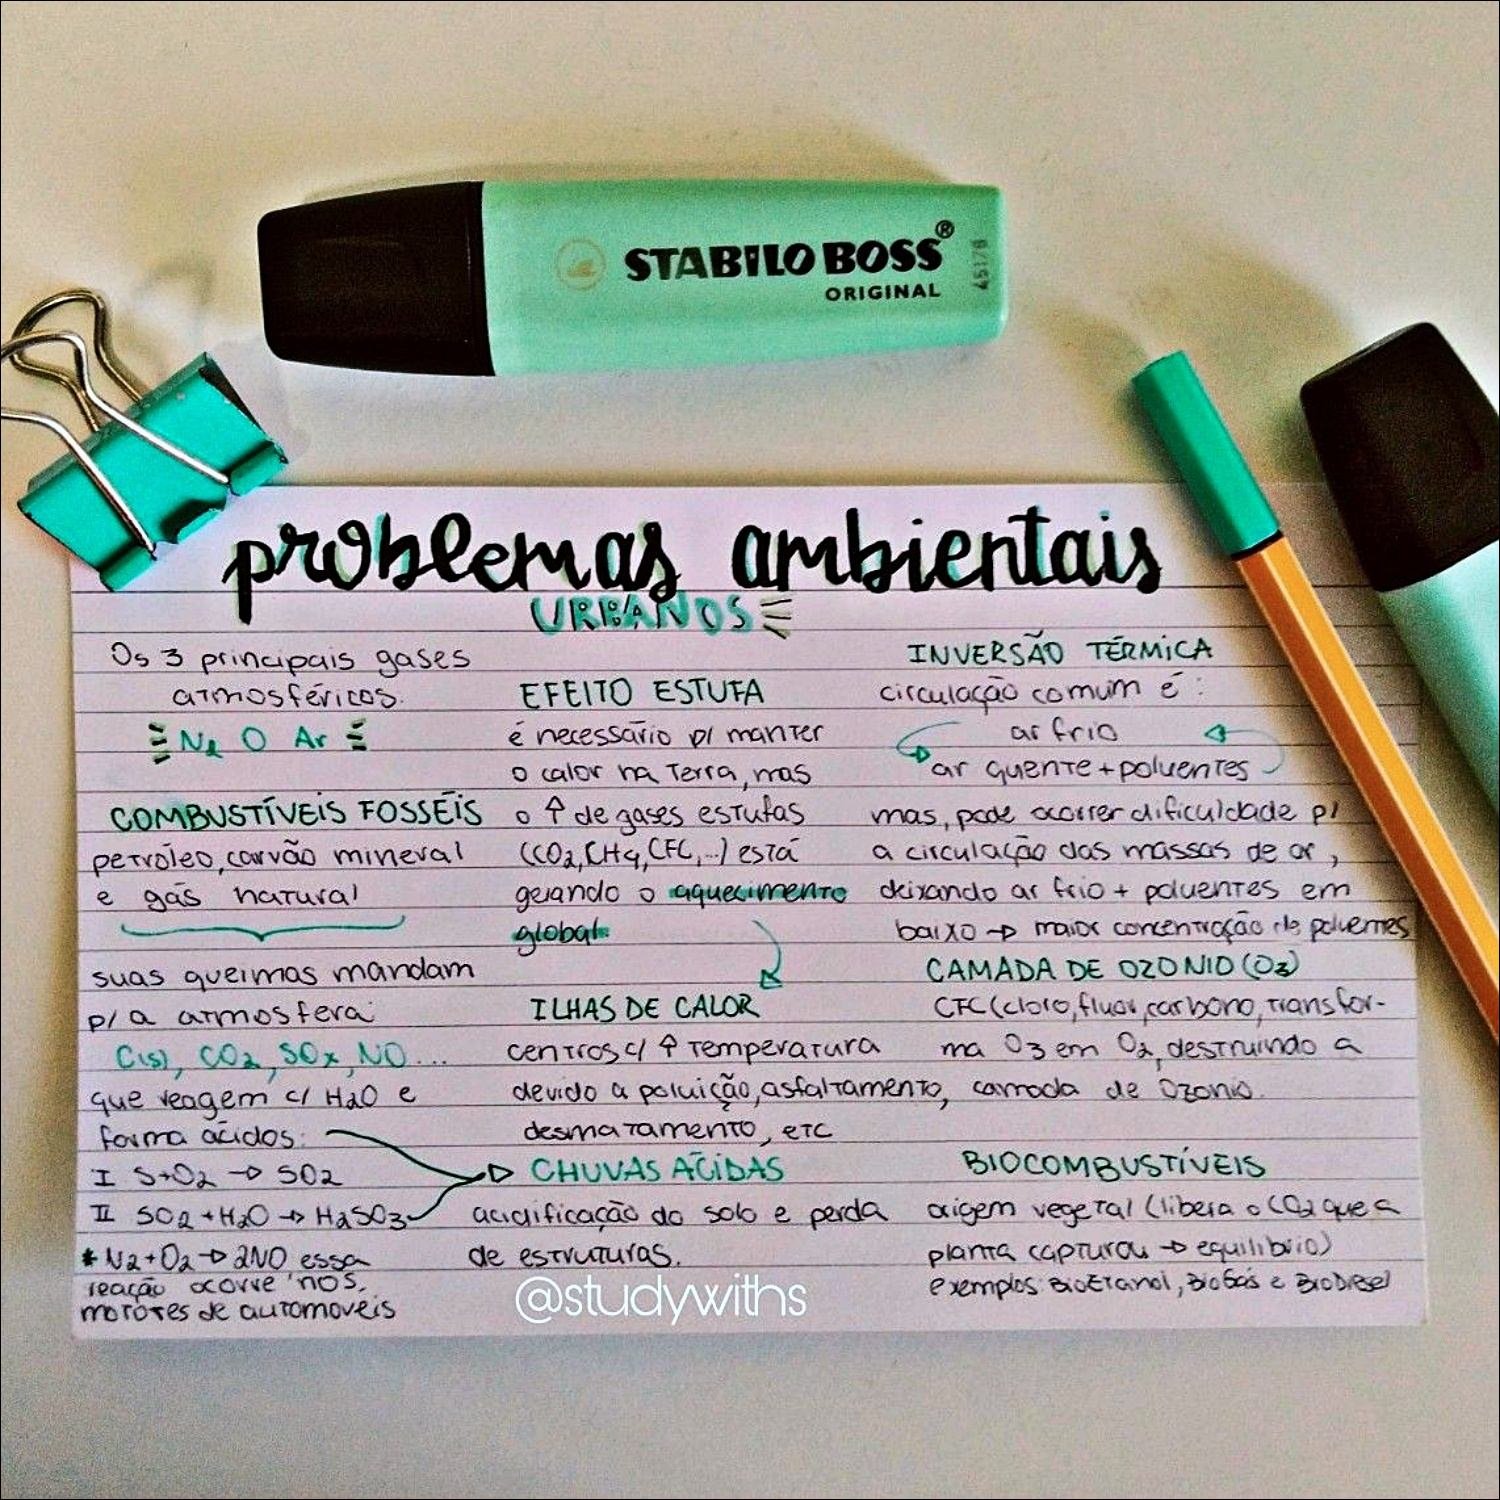 STABILO BOSS®
ORIGINAL
45178
problemas ambientais
URBANOS
Os 3 principais gases
atmosféricos.
N2 O Ar
COMBUSTÍVEIS FOSSÉIS
petróleo, carvão mineral
e gás natural
suas queimas mandam
p/ a atmosfera:
C(s), CO2, SOx, NO...
que reagem c/ H2O e
forma ácidos:
I S+O2 → SO2
II SO2 + H2O → H2SO3
* N2+O2 → 2NO essa
reação ocorre nos.
motores de automoveis
EFEITO ESTUFA
é necessário p/ manter
o calor na Terra, mas
o ↑ de gases estufas
(CO2, CH4, CFC, ...) está
gerando o aquecimento
global.
ILHAS DE CALOR
centros c/ ↑ temperatura
devido a poluição, asfaltamento,
desmatamento, etc
CHUVAS ÁCIDAS
acidificação do solo e perda
de estruturas.
INVERSÃO TÉRMICA
circulação comum é:
ar frio
ar quente + poluentes
mas, pode ocorrer dificuldade p/
a circulação das massas de ar,
deixando ar frio + poluentes em
baixo → maior concentração de poluentes
CAMADA DE OZONIO (O3)
CFC (cloro, fluor, carbono, transfor-
ma O3 em O2, destruindo a
camada de Ozonio.
BIOCOMBUSTÍVEIS
origem vegetal (libera o CO2 que a
planta capturou → equilibrio)
exemplos: BioEtanol, BioGás e BioDiesel
@studywiths